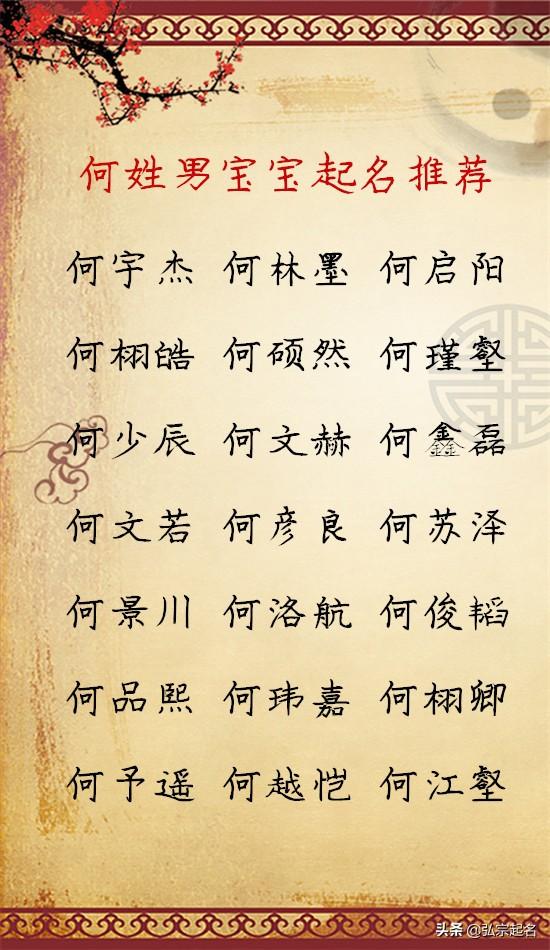 何姓男宝宝起名推荐
何宇杰 何林墨 何启阳
何栩皓 何硕然 何瑾壑
何少辰 何文赫 何鑫磊
何文若 何彦良 何苏泽
何景川 何洛航 何俊韬
何品熙 何玮嘉 何栩卿
何予遥 何越恺 何江壑
头条 @弘宗起名